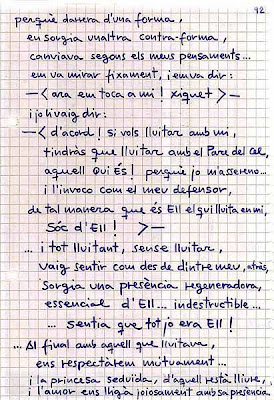 92
perquè darrera d'una forma,
en sorgia una altra contra-forma,
canviava segons els meus pensaments...
em va mirar fixament, i em va dir:
—< ara em toca a mi! xiquet >—
i jo li vaig dir:
—< d'acord! si vols lluitar amb mi,
tindràs que lluitar amb el Pare del Cel,
aquell Qui És! perquè jo m'assereno...
i l'invoco com el meu defensor,
de tal manera que és Ell el qui lluita en mi,
Sóc d'Ell! >—
... i tot lluitant, sense lluitar,
vaig sentir com des de dintre meu,
sorgia una presència regeneradora,
essencial d'Ell... indestructible...
... sentia que tot jo era Ell!
... Al final amb aquell que lluitava,
ens respectàrem mútuament...
i la princesa seduïda, d'aquell restà lliure,
i l'amor ens lligà joiosament amb sa presència